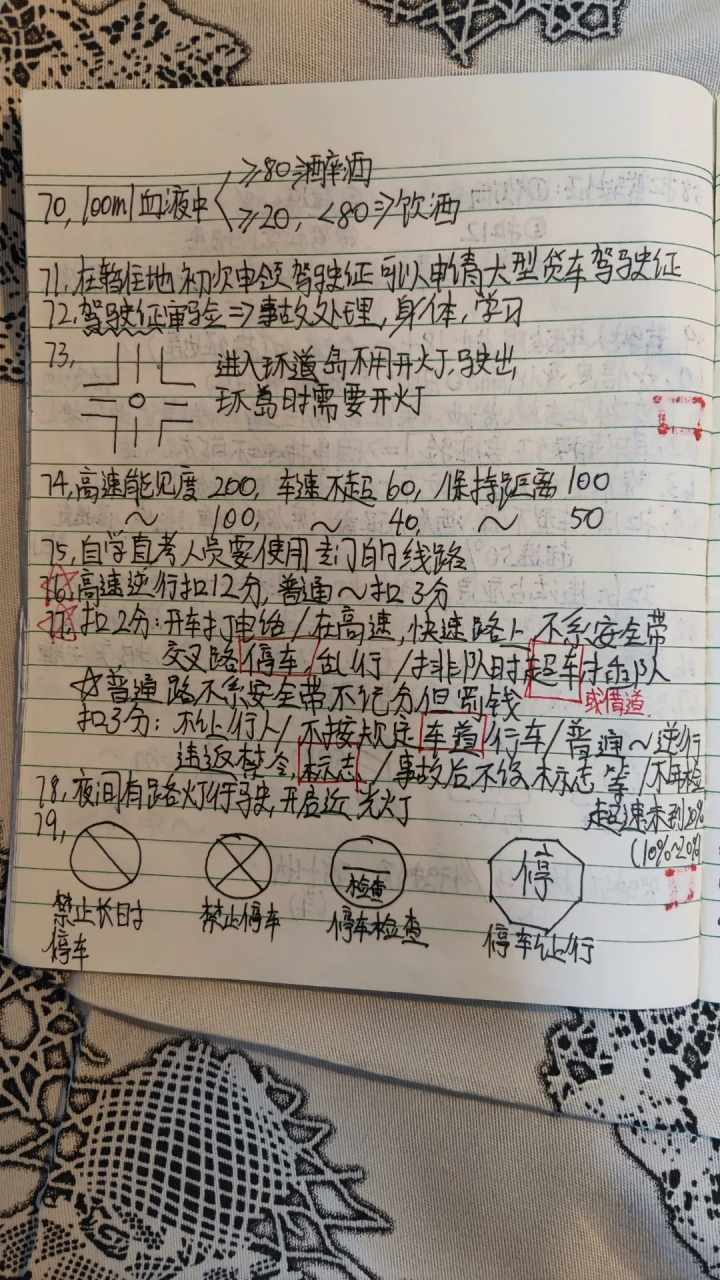 ≥80⇒醉酒
70, 100ml血液中
≥20, <80⇒饮酒
71. 在暂住地初次申领驾驶证可以申请大型货车驾驶证
72. 驾驶证审验⇒事故处理, 身体, 学习
73,
进入环道岛不用开灯, 驶出
环岛时需要开灯
74, 高速能见度 200, 车速不超 60, 保持距离 100
～ 100, ～ 40, ～ 50
75, 自学直考人员要使用专门的线路
76, 高速逆行扣12分, 普通～扣3分
77, 扣2分: 开车打电话/在高速, 快速路上, 不系安全带
交叉路停车, 乱行/排非队时超车扌队
或借道,
☆普通路不系安全带不记分但罚钱
扣3分: 不让行人/不按规定车道行车/普通～逆行
违返禁令, 标志/事故后不设标志等/不年检
超速未到20%
(10%~20%
78, 夜间有路灯行驶, 开启近光灯
79,
检查
停
禁止长时
停车
禁止停车
停车检查
停车让行